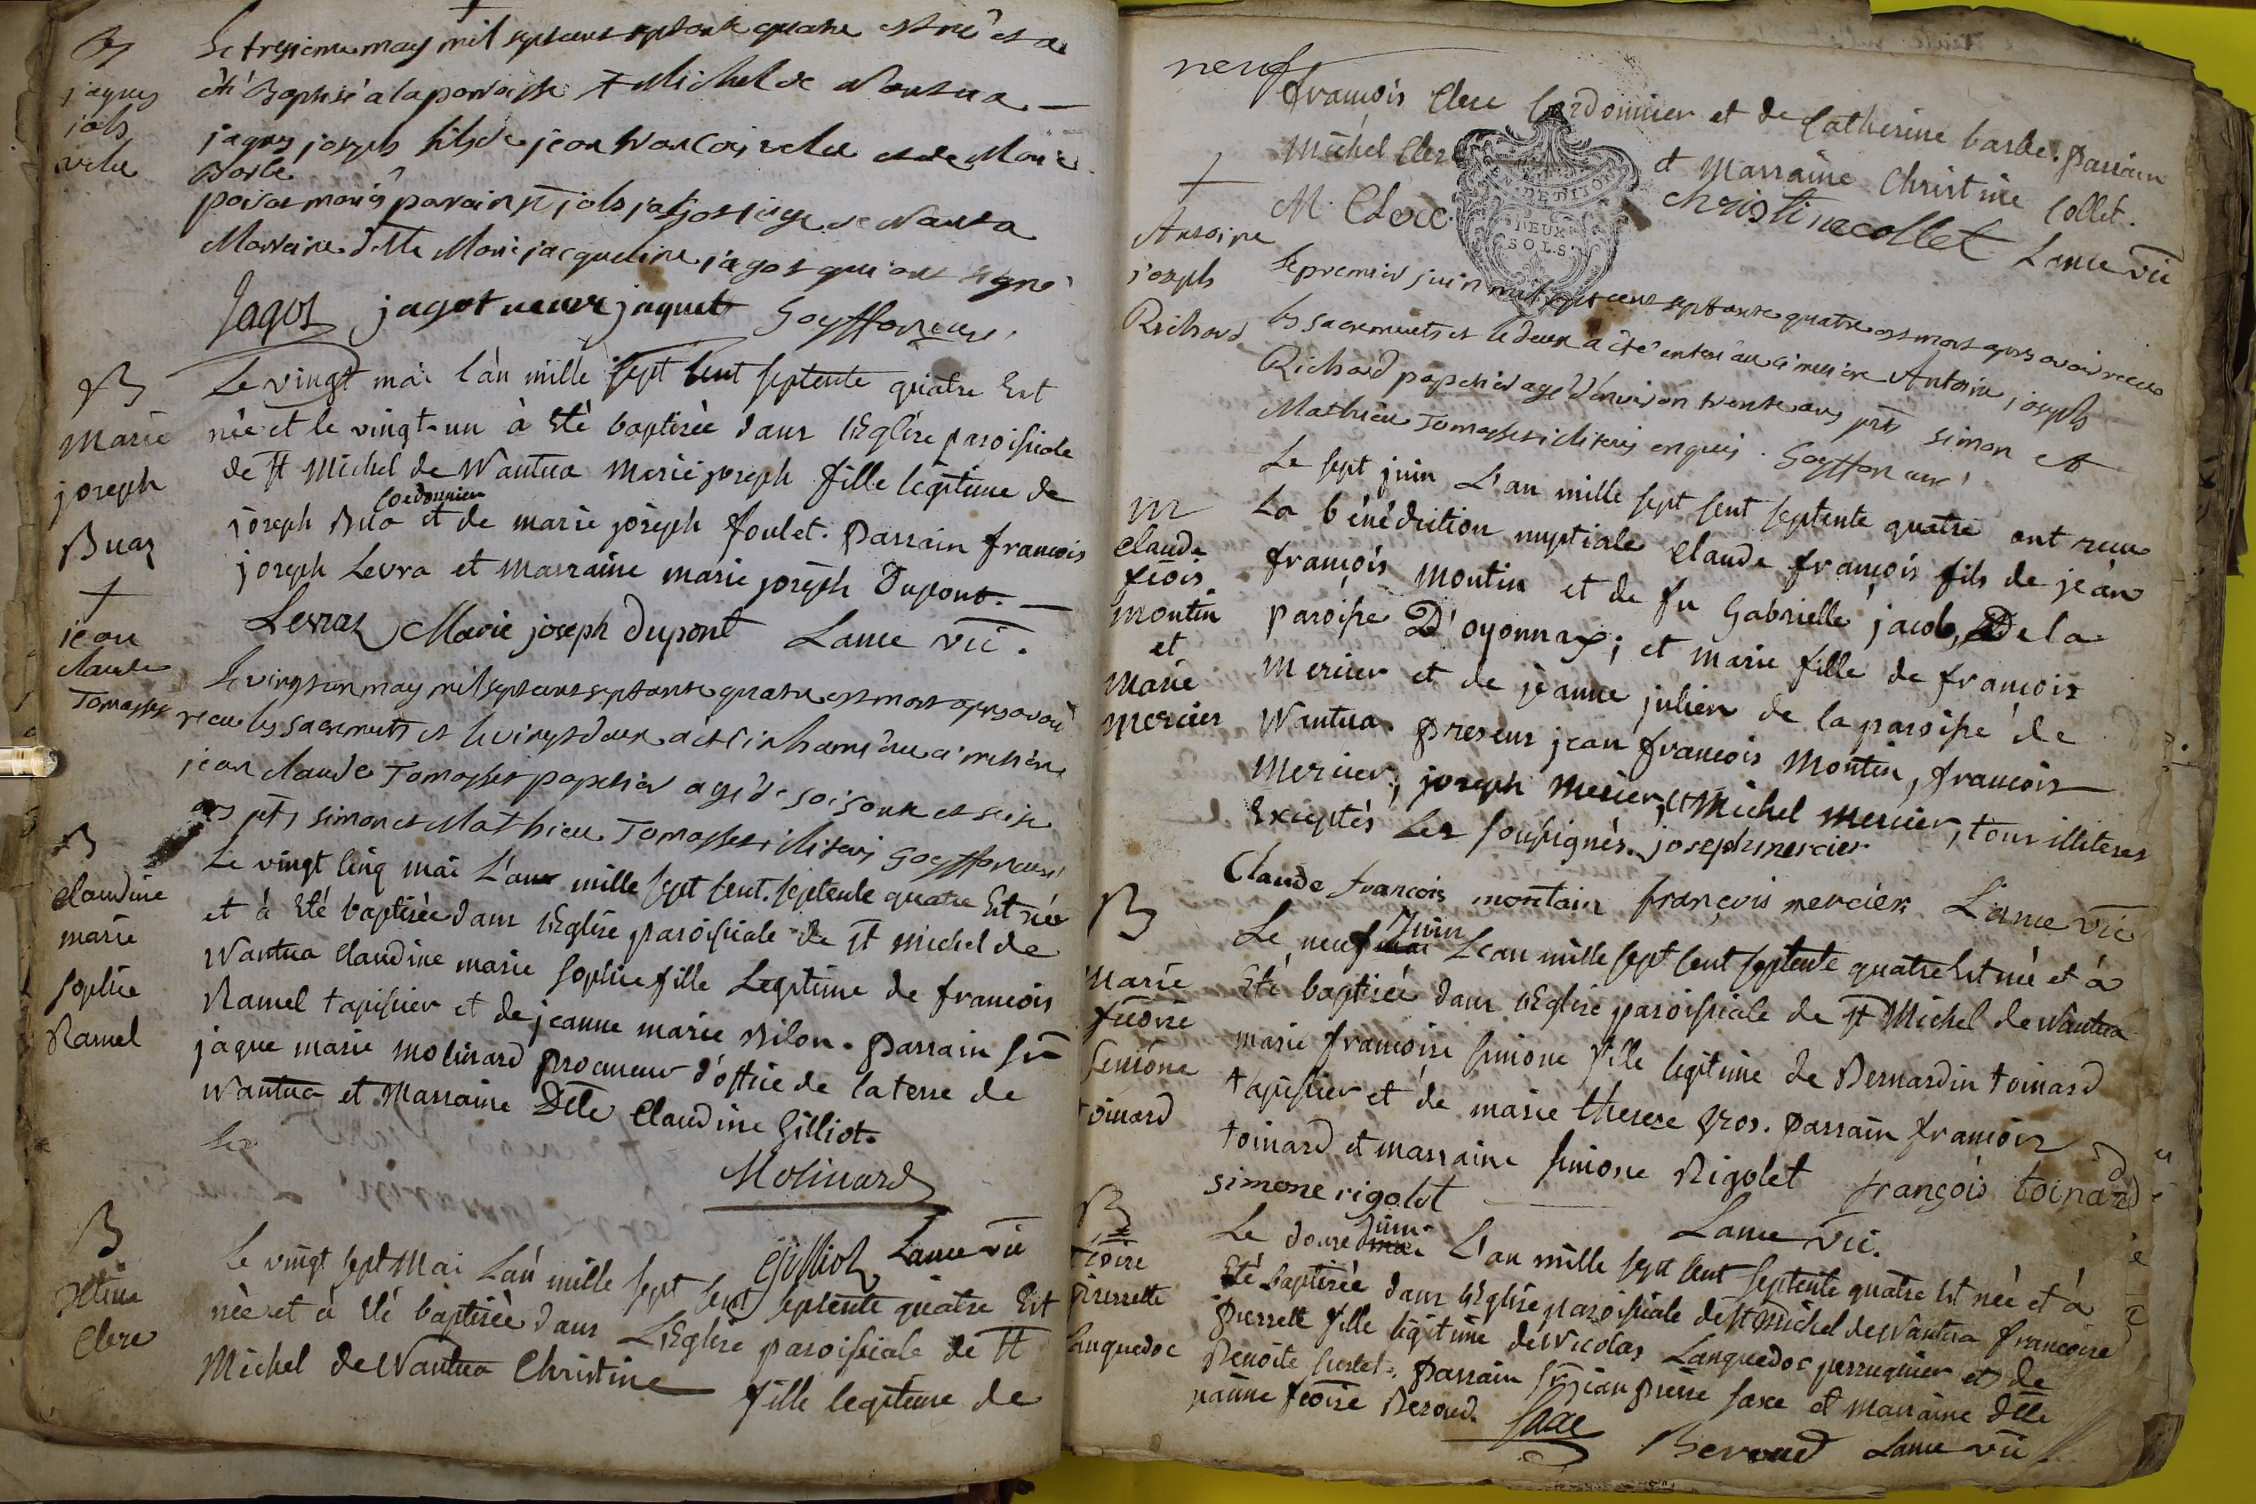 B
jaques
jols
velu
Le tresieme may mil septcent septante quatre est né et a
été Baptisé a la parroisse St Michel de Nantua
jaques joseph fils de jean francois velu et de Marie
parain
Marraine dlle Marie jacqueline jagot qui ont signé
Jagot jagot jaquet Goyffon curé
B
Marie
joseph
Buaz
Le vingt mai l'an mille sept cent septente quatre Est
née et le vingt-un à Eté baptisée dans l'Eglise paroissiale
de St Michel de Nantua Marie joseph fille légitime de
cordonnier
joseph Bua et de marie joseph foulet. Parrain francois
joseph Levra et Marraine marie joseph Dupont.
Levraz Marie joseph dupont Lance vic.
†
jean
claude
Tomasset
Le vingtun may mil septcent septante quatre est mort apres avoir
recu les sacrements et le vingtdeux a été inhumé au cimetière
jean claude Tomasset papetier agé de soisante et seise
ans pnts simon et Mathieu Tomasset illiterés Goyffon curé
B
claudine
marie
sophie
Ramel
Le vingt cinq mai L'an mille sept cent septente quatre Est née
et à Eté baptisée dans l'Eglise paroissiale de St Michel de
Nantua Claudine marie sophie fille Legitime de francois
Ramel tapissier et de jeanne marie Bilon. Parrain sr
jaque marie molinard procureur d'office de la terre de
Nantua et Marraine Dlle Claudine Gilliot.
Molinard
Gilliot Lance vic
B
Xtine
Clerc
Le vingt sept Mai L'an mille sept cent septente quatre Est
née et à Eté baptisée dans L'Eglise paroissiale de St
Michel de Nantua Christine fille legitime de
neuf
françois Clerc Cordonnier et de Catherine barbe. Parrain
Michel Clerc et Marraine Christine Collet.
M. Clerc christine collet Lance vic
DEUX
SOLS
†
Antoine
joseph
Richard
Le premier juin mil septcent septante quatre est mort apres avoir receu
les sacrements et le deux a été enterré au cimetiere Antoine joseph
Richard papetier agé d'environ trente ans pnts simon et
Mathieu Tomasset illiterés enquis. Goyffon curé
M
Claude
fcois
montin
et
Marie
Mercier
Le sept juin L'an mille sept cent septente quatre ont recu
La bénédiction nuptiale Claude françois fils de jean
françois Montin et de fu Gabrielle jacob, De la
paroisse D'oyonnax; et marie fille de francois
Mercier et de jeanne julien de la paroisse de
Nantua. presens jean francois Montin, francois
Mercier, joseph Mercier, et Michel Mercier, tous illiteres
Exceptés Les soussignés. joseph mercier
Claude francois montain françois mercier Lance vic
B
Marie
fcoise
simone
toinard
juin
Le neuf mai L'an mille sept cent septente quatre Est née et à
Eté baptisée dans l'Eglise paroissiale de St Michel de Nantua
marie francoise simone fille legitime de Bernardin toinard
tapissier et de marie therese gros. Parrain francois
toinard et marraine simone Rigolet françois toinard
simone rigolet Lance vic.
B
fcoise
pierrette
Languedoc
juin
Le douze mai L'an mille sept cent septente quatre Est née et à
Eté baptisée dans l'Eglise paroissiale de St Michel de Nantua francoise
pierrette fille légitime de Nicolas Languedoc perruquier et de
Benoite. Parrain sr jean pierre saxe et marraine dlle
jeanne fcoise Beroud.
Saxe Beroud Lance vic